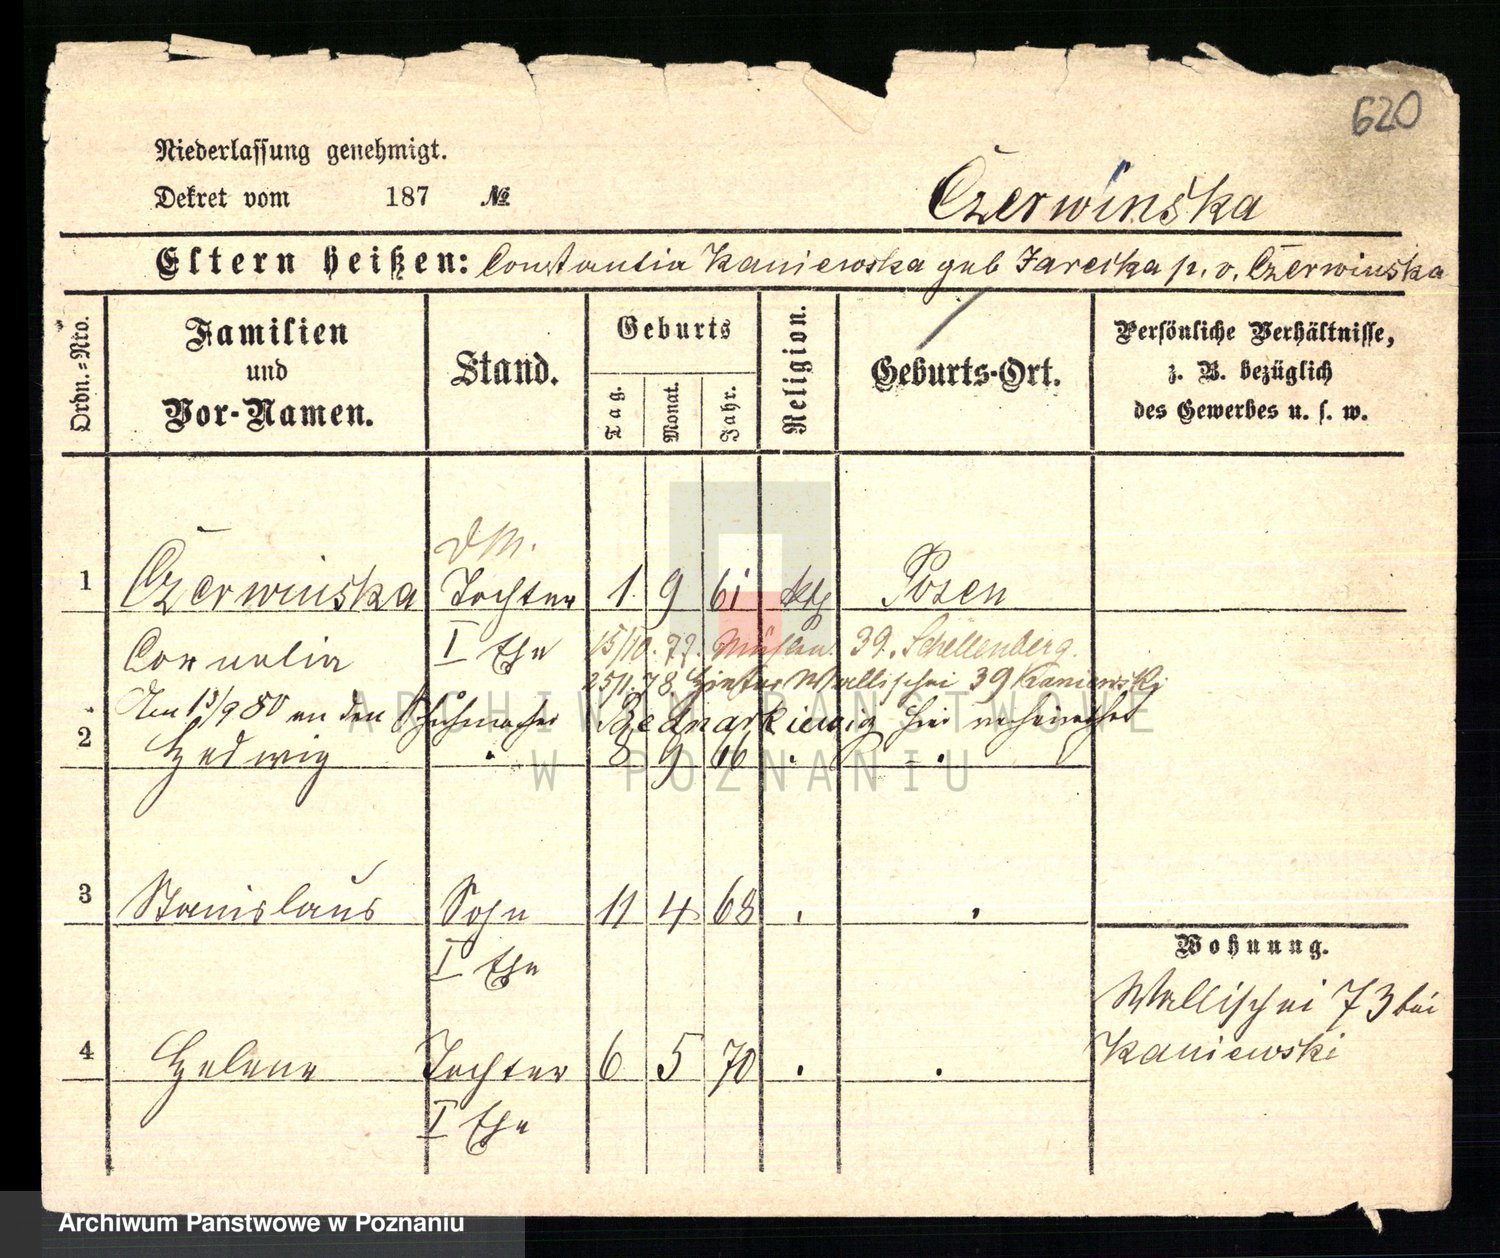 620
Niederlassung genehmigt.
Dekret vom 187 №
Czerwińska
Eltern heißen: Constantia Kaniewska geb Jarecka p. v. Czerwinska
Ordn.=Nro.
Familien und Vor-Namen.
Stand.
Geburts
Tag.
Monat.
Jahr.
Religion.
Geburts-Ort.
Persönliche Verhältnisse, z. B. bezüglich des Gewerbes u. s. w.
DM.
1 Czerwinska Tochter 1. 9 61 kth Posen
Cornelia I Ehe 15/10. 77. Mühlen 39. Schellenberg.
25/1. 78 Hinter Wallischei 39 Kaniewski
Am 13/9 80 an den Schuhmacher Bednarkiewicz hier verheirathet
2 Hedwig " 8 9 66 . .
3 Stanislaus Sohn 11 4 68 . .
I Ehe
Wohnung.
Wallischei 73 bei
Kaniewski
4 Helene Tochter 6 5 70 . .
I Ehe
ARCHIWUM PAŃSTWOWE
W POZNANIU
Archiwum Państwowe w Poznaniu